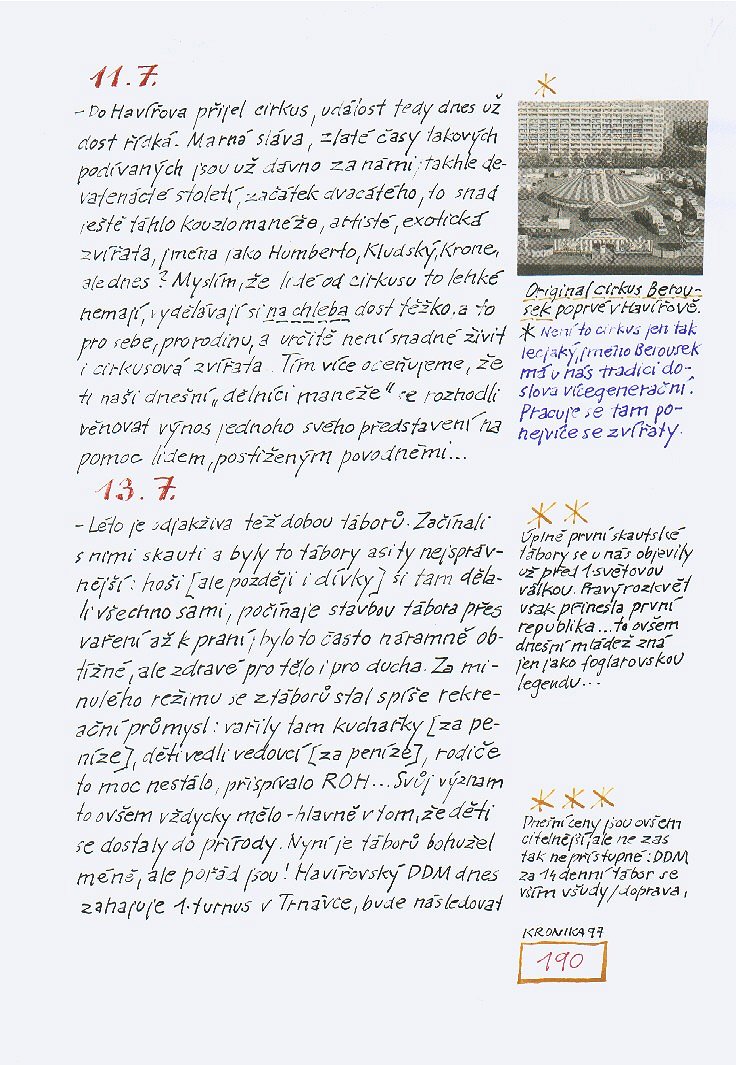 11.7.
- Do Havířova přijel cirkus, událost tedy dnes už
dost řídká. Marná sláva, zlaté časy takových
podívaných jsou už dávno za námi; takhle de-
vatenácté století, začátek dvacátého, to snad
ještě táhlo kouzlo manéže, artisté, exotická
zvířata, jména jako Humberto, Kludský, Krone,
ale dnes? Myslím, že lidé od cirkusu to lehké
nemají, vydělávají si na chleba dost těžko. a to
pro sebe, pro rodinu, a určitě není snadné živit
i cirkusová zvířata. Tím více oceňujeme, že
ti naši dnešní „dělníci manéže" se rozhodli
věnovat výnos jednoho svého představení na
pomoc lidem, postiženým povodněmi...
13.7.
- Léto je odjakživa též dobou táborů. Začínali
s nimi skauti a byly to tábory asi ty nejspráv-
nější: hoši [ale později i dívky] si tam děla-
li všechno sami, počínaje stavbou tábora přes
vaření až k praní; bylo to často náramně ob-
tížné, ale zdravé pro tělo i pro ducha. Za mi-
nulého režimu se z táborů stal spíše rekre-
ační průmysl: vařily tam kuchařky [za pe-
níze], děti vedli vedoucí [za peníze], rodiče
to moc nestálo, přispívalo ROH... Svůj význam
to ovšem vždycky mělo - hlavně v tom, že děti
se dostaly do přírody. Nyní je táborů bohužel
méně, ale pořád jsou! Havířovský DDM dnes
zahajuje 1. turnus v Trnávce, bude následovat
*
Original cirkus Berou-
sek poprvé v Havířově.
* Není to cirkus jen tak
lecjaký, jméno Berousek
má u nás tradici do-
slova vícegenerační.
Pracuje se tam po-
nejvíce se zvířaty.
* *
Úplně první skautské
tábory se u nás objevily
už před 1. světovou
válkou. Pravý rozkvět
však přinesla první
republika... to ovšem
dnešní mládež zná
jen jako foglarovskou
legendu...
* * *
Dnešní ceny jsou ovšem
citelnější, ale ne zas
tak nepřístupné: DDM
za 14 denní tábor se
vším všudy /doprava,
KRONIKA 97
190